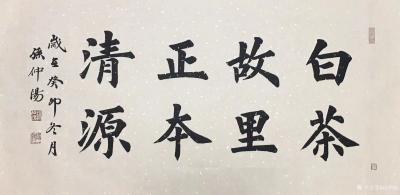 白茶
故里
正本
清源
歲在癸卯冬月
孫仲湯